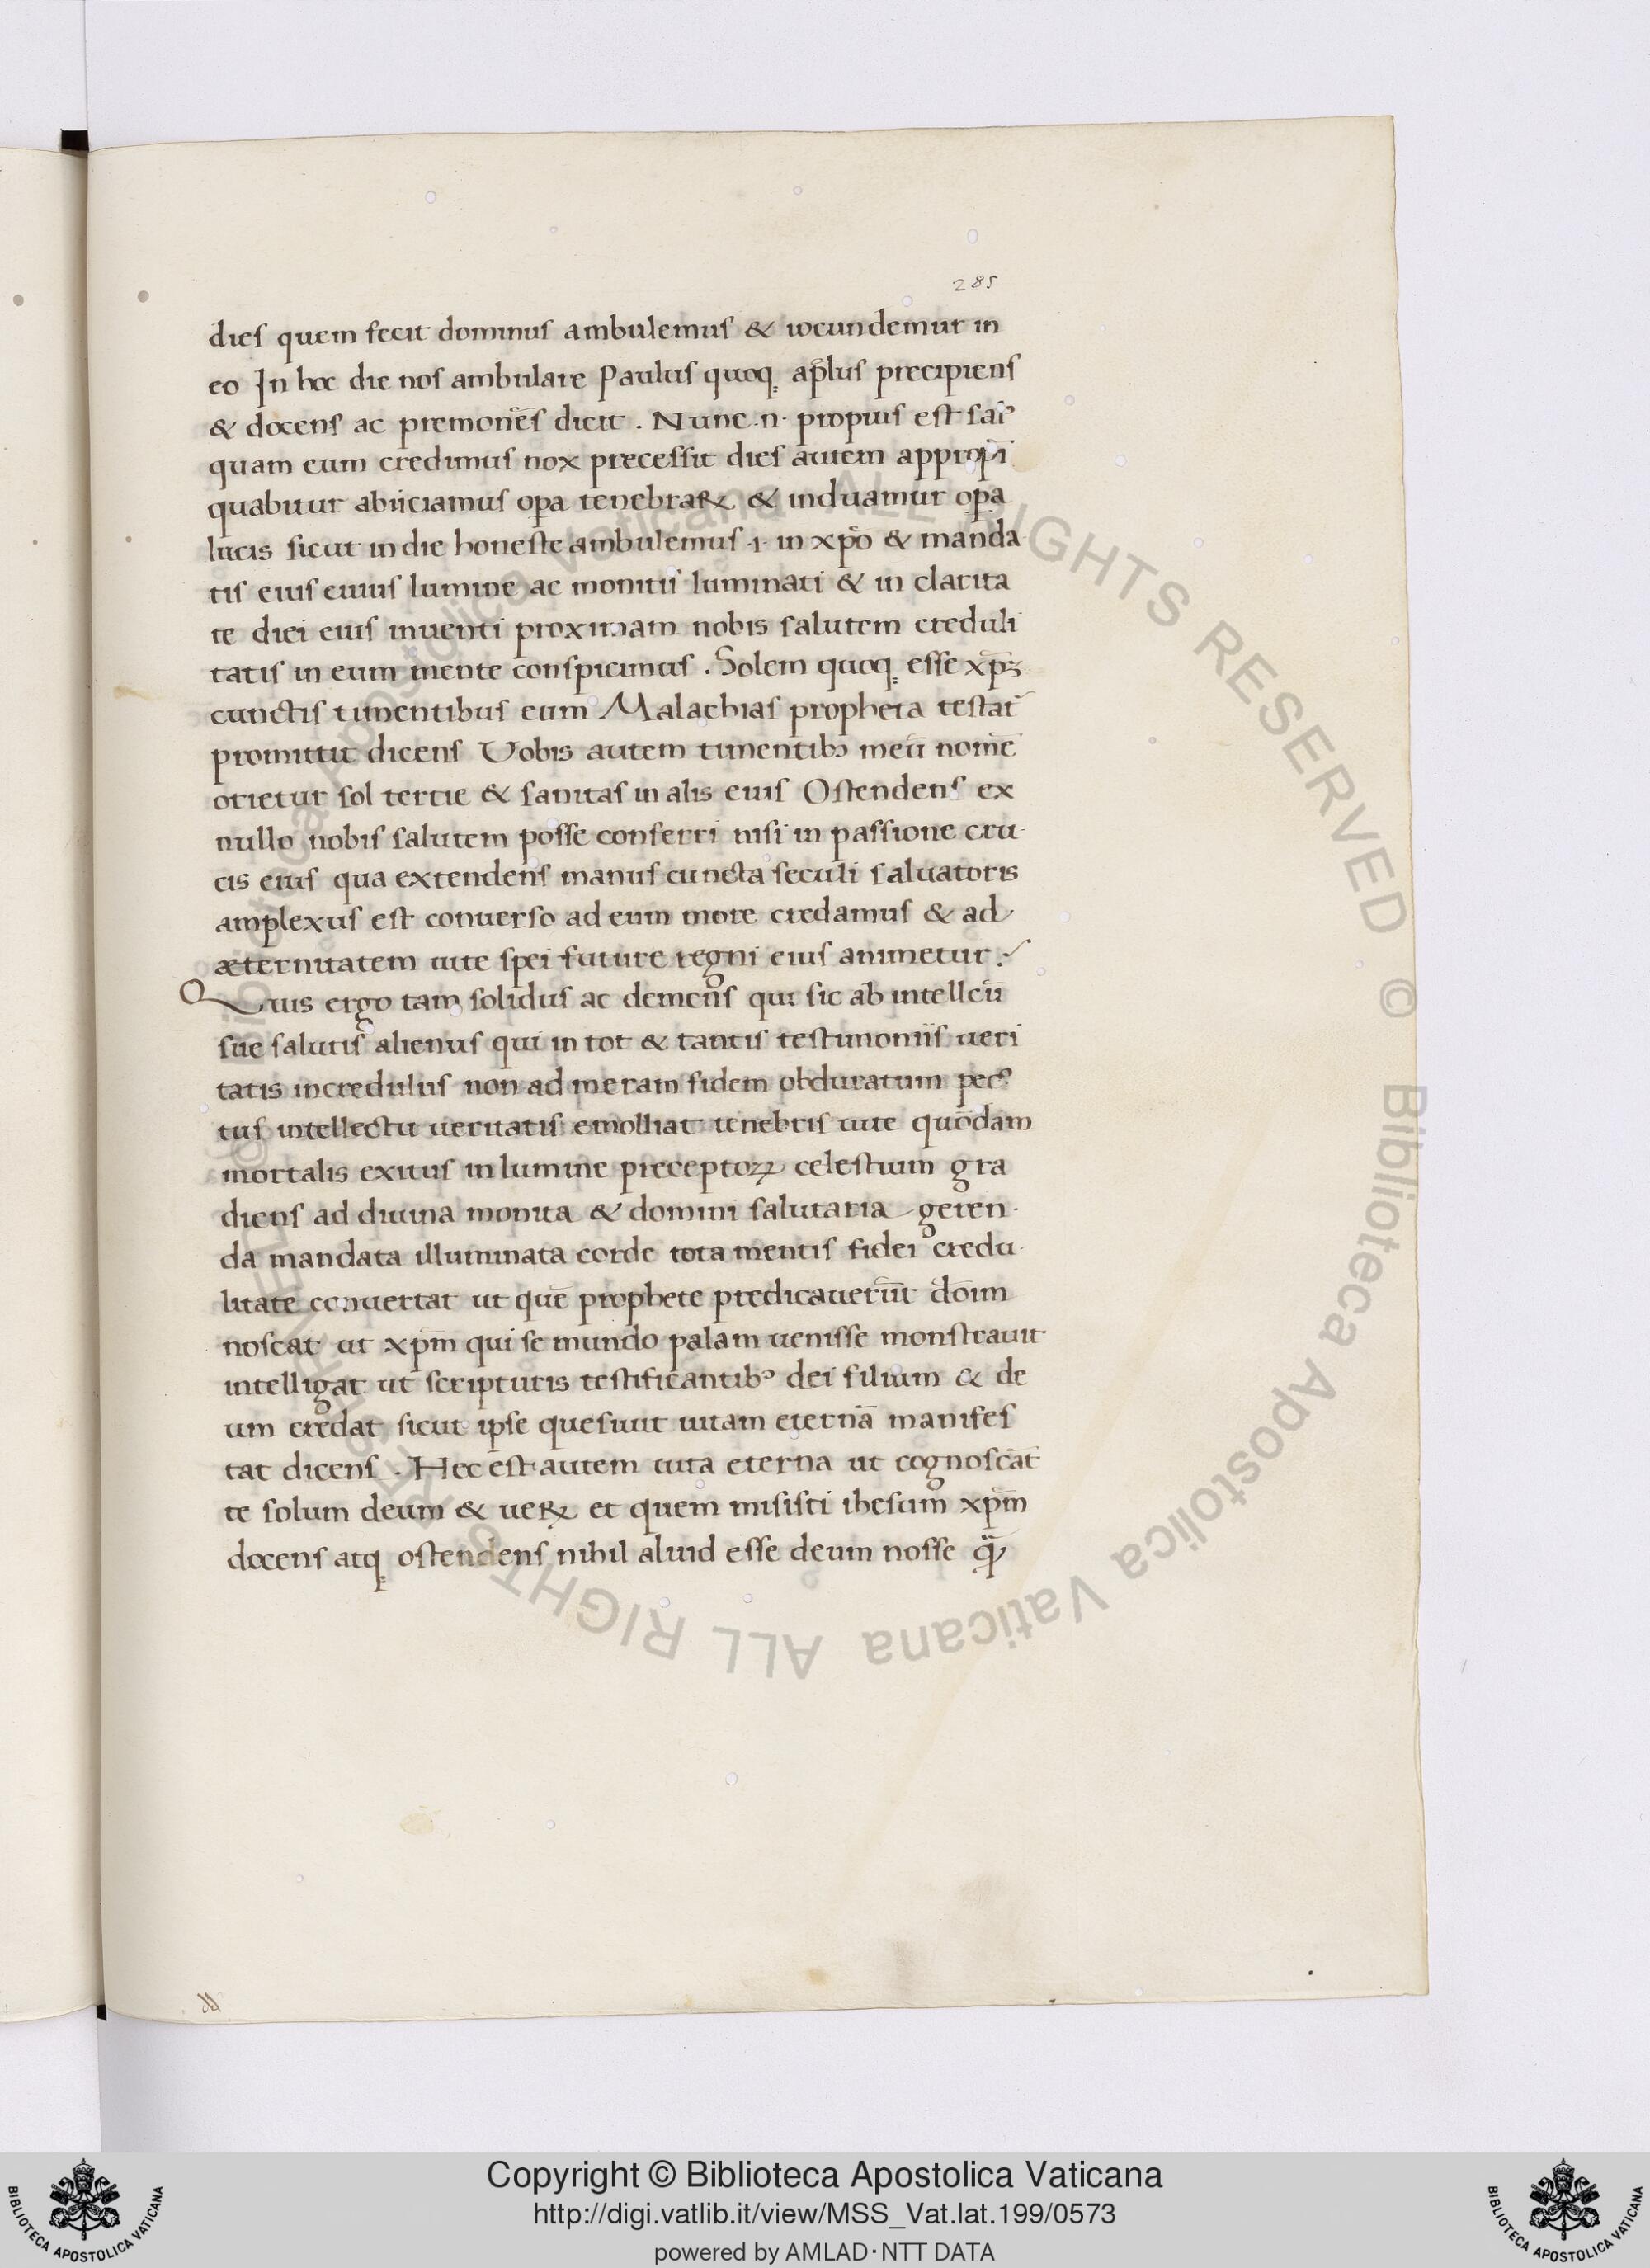 285
dies quem fecit dominus ambulemus & iocundemur in
eo In hoc die nos ambulare Paulus quoq; ap̄lus precipiens
& docens ac premonēs dicit . Nunc .n. propius est
quam eum credimus nox precessit dies autem appropi
quabitur abiiciamus opa tenebraꝝ & induamur opa
lucis sicut in die honeste ambulemus .i. in xp̄o & manda
tis eius cuius lumine ac monitu luminati & in clarita
te diei eius inuenti proximam nobis salutem creduli
tatis in eum mente conspicimus . Solem quoq; esse xp̄ꝫ
cunctis timentibus eum Malachias propheta testat̄
promittit dicens Vobis autem timentibꝰ meū nomē
orietur sol tertie & sanitas in alis eius Ostendens ex
nullo nobis salutem posse conferri nisi in passione cru
cis eius qua extendens manus cuncta seculi saluatoris
amplexus est conuerso ad eum more credamus & ad
æternitatem uite spei future regni eius animetur .
Quis ergo tam solidus ac demens qui sic ab intellcū
sue salutis alienus qui in tot & tantis testimoniis ueri
tatis incredulus non ad meram fidem obduratum pec
tus intellectu ueritatis emolliat tenebris uite quōdam
mortalis exitus in lumine preceptoꝝ celestium gra
diens ad diuina monita & domini salutaria geren
da mandata illuminata corde tota mentis fidei credu
litate conuertat ut quē prophete predicauerūt dōim
noscat ut xp̄m qui se mundo palam uenisse monstrauit
intelligat ut scripturis testificantibꝰ dei filium & de
um credat sicut ipse quesiuit uitam eternā manifes
tat dicens . Hec est autem uita eterna ut cognoscāt
te solum deum & ueꝝ et quem misisti ihesum xp̄m
docens atq; ostendens nihil aliud esse deum nosse
© Biblioteca Apostolica Vaticana ALL RIGHTS RESERVED © Biblioteca Apostolica Vaticana ALL RIGHTS RESERVED
Copyright © Biblioteca Apostolica Vaticana
http://digi.vatlib.it/view/MSS_Vat.lat.199/0573
powered by AMLAD·NTT DATA
BIBLIOTECA APOSTOLICA VATICANA
BIBLIOTECA APOSTOLICA VATICANA